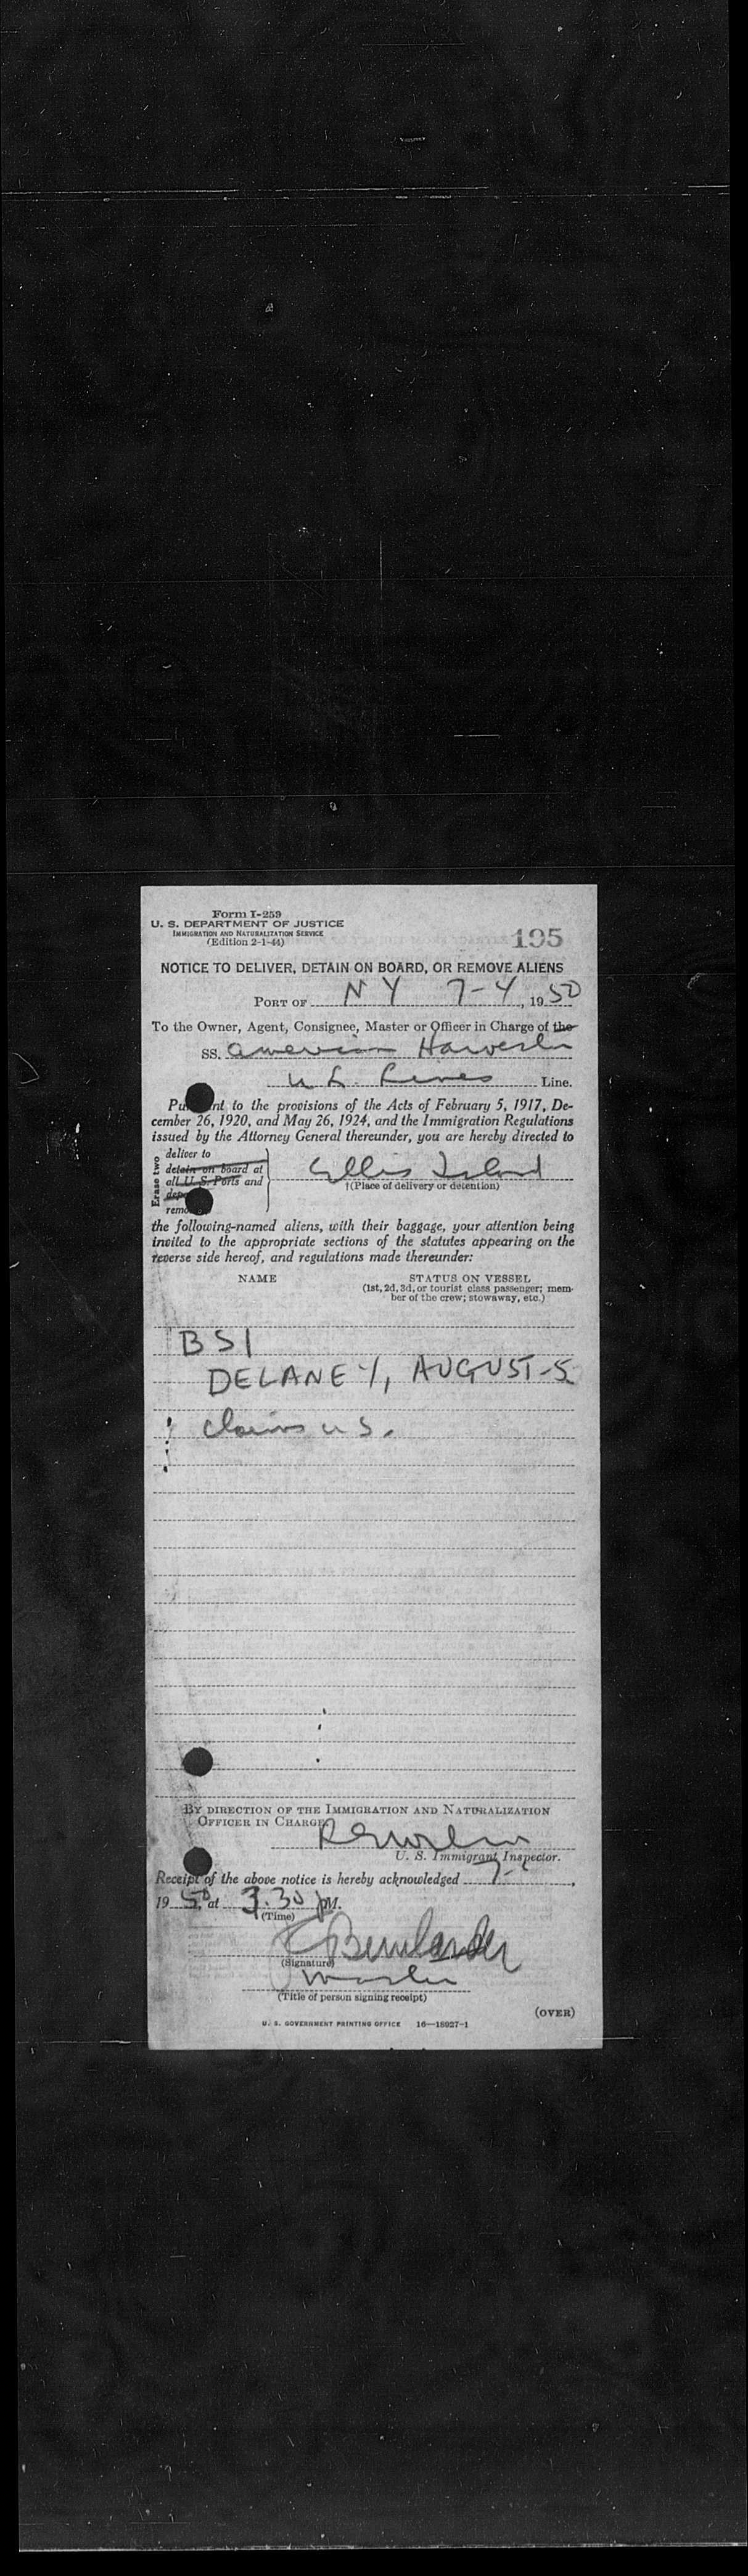 Form I-259
U. S. DEPARTMENT OF JUSTICE
IMMIGRATION AND NATURALIZATION SERVICE
(Edition 2-1-44)
195
NOTICE TO DELIVER, DETAIN ON BOARD, OR REMOVE ALIENS
PORT OF N Y 7-4, 1950
To the Owner, Agent, Consignee, Master or Officer in Charge of the
SS. American Harvester
U S. Lines Line.
Pu nt to the provisions of the Acts of February 5, 1917, De-
cember 26, 1920, and May 26, 1924, and the Immigration Regulations
issued by the Attorney General thereunder, you are hereby directed to
Erase two
deliver to
detain on board at
all U. S. Ports and
remo
Ellis Island
†(Place of delivery or detention)
the following-named aliens, with their baggage, your attention being
invited to the appropriate sections of the statutes appearing on the
reverse side hereof, and regulations made thereunder:
NAME
STATUS ON VESSEL
(1st, 2d, 3d, or tourist class passenger; mem-
ber of the crew; stowaway, etc.)
BSI
DELANEY, AUGUST-S
claims U S.
BY DIRECTION OF THE IMMIGRATION AND NATURALIZATION
OFFICER IN CHARGE
U. S. Immigrant Inspector.
Receipt of the above notice is hereby acknowledged 7-
1950, at 3.30 PM.
(Time)
(Signature)
Master
(Title of person signing receipt)
(OVER)
U. S. GOVERNMENT PRINTING OFFICE 16—18927-1